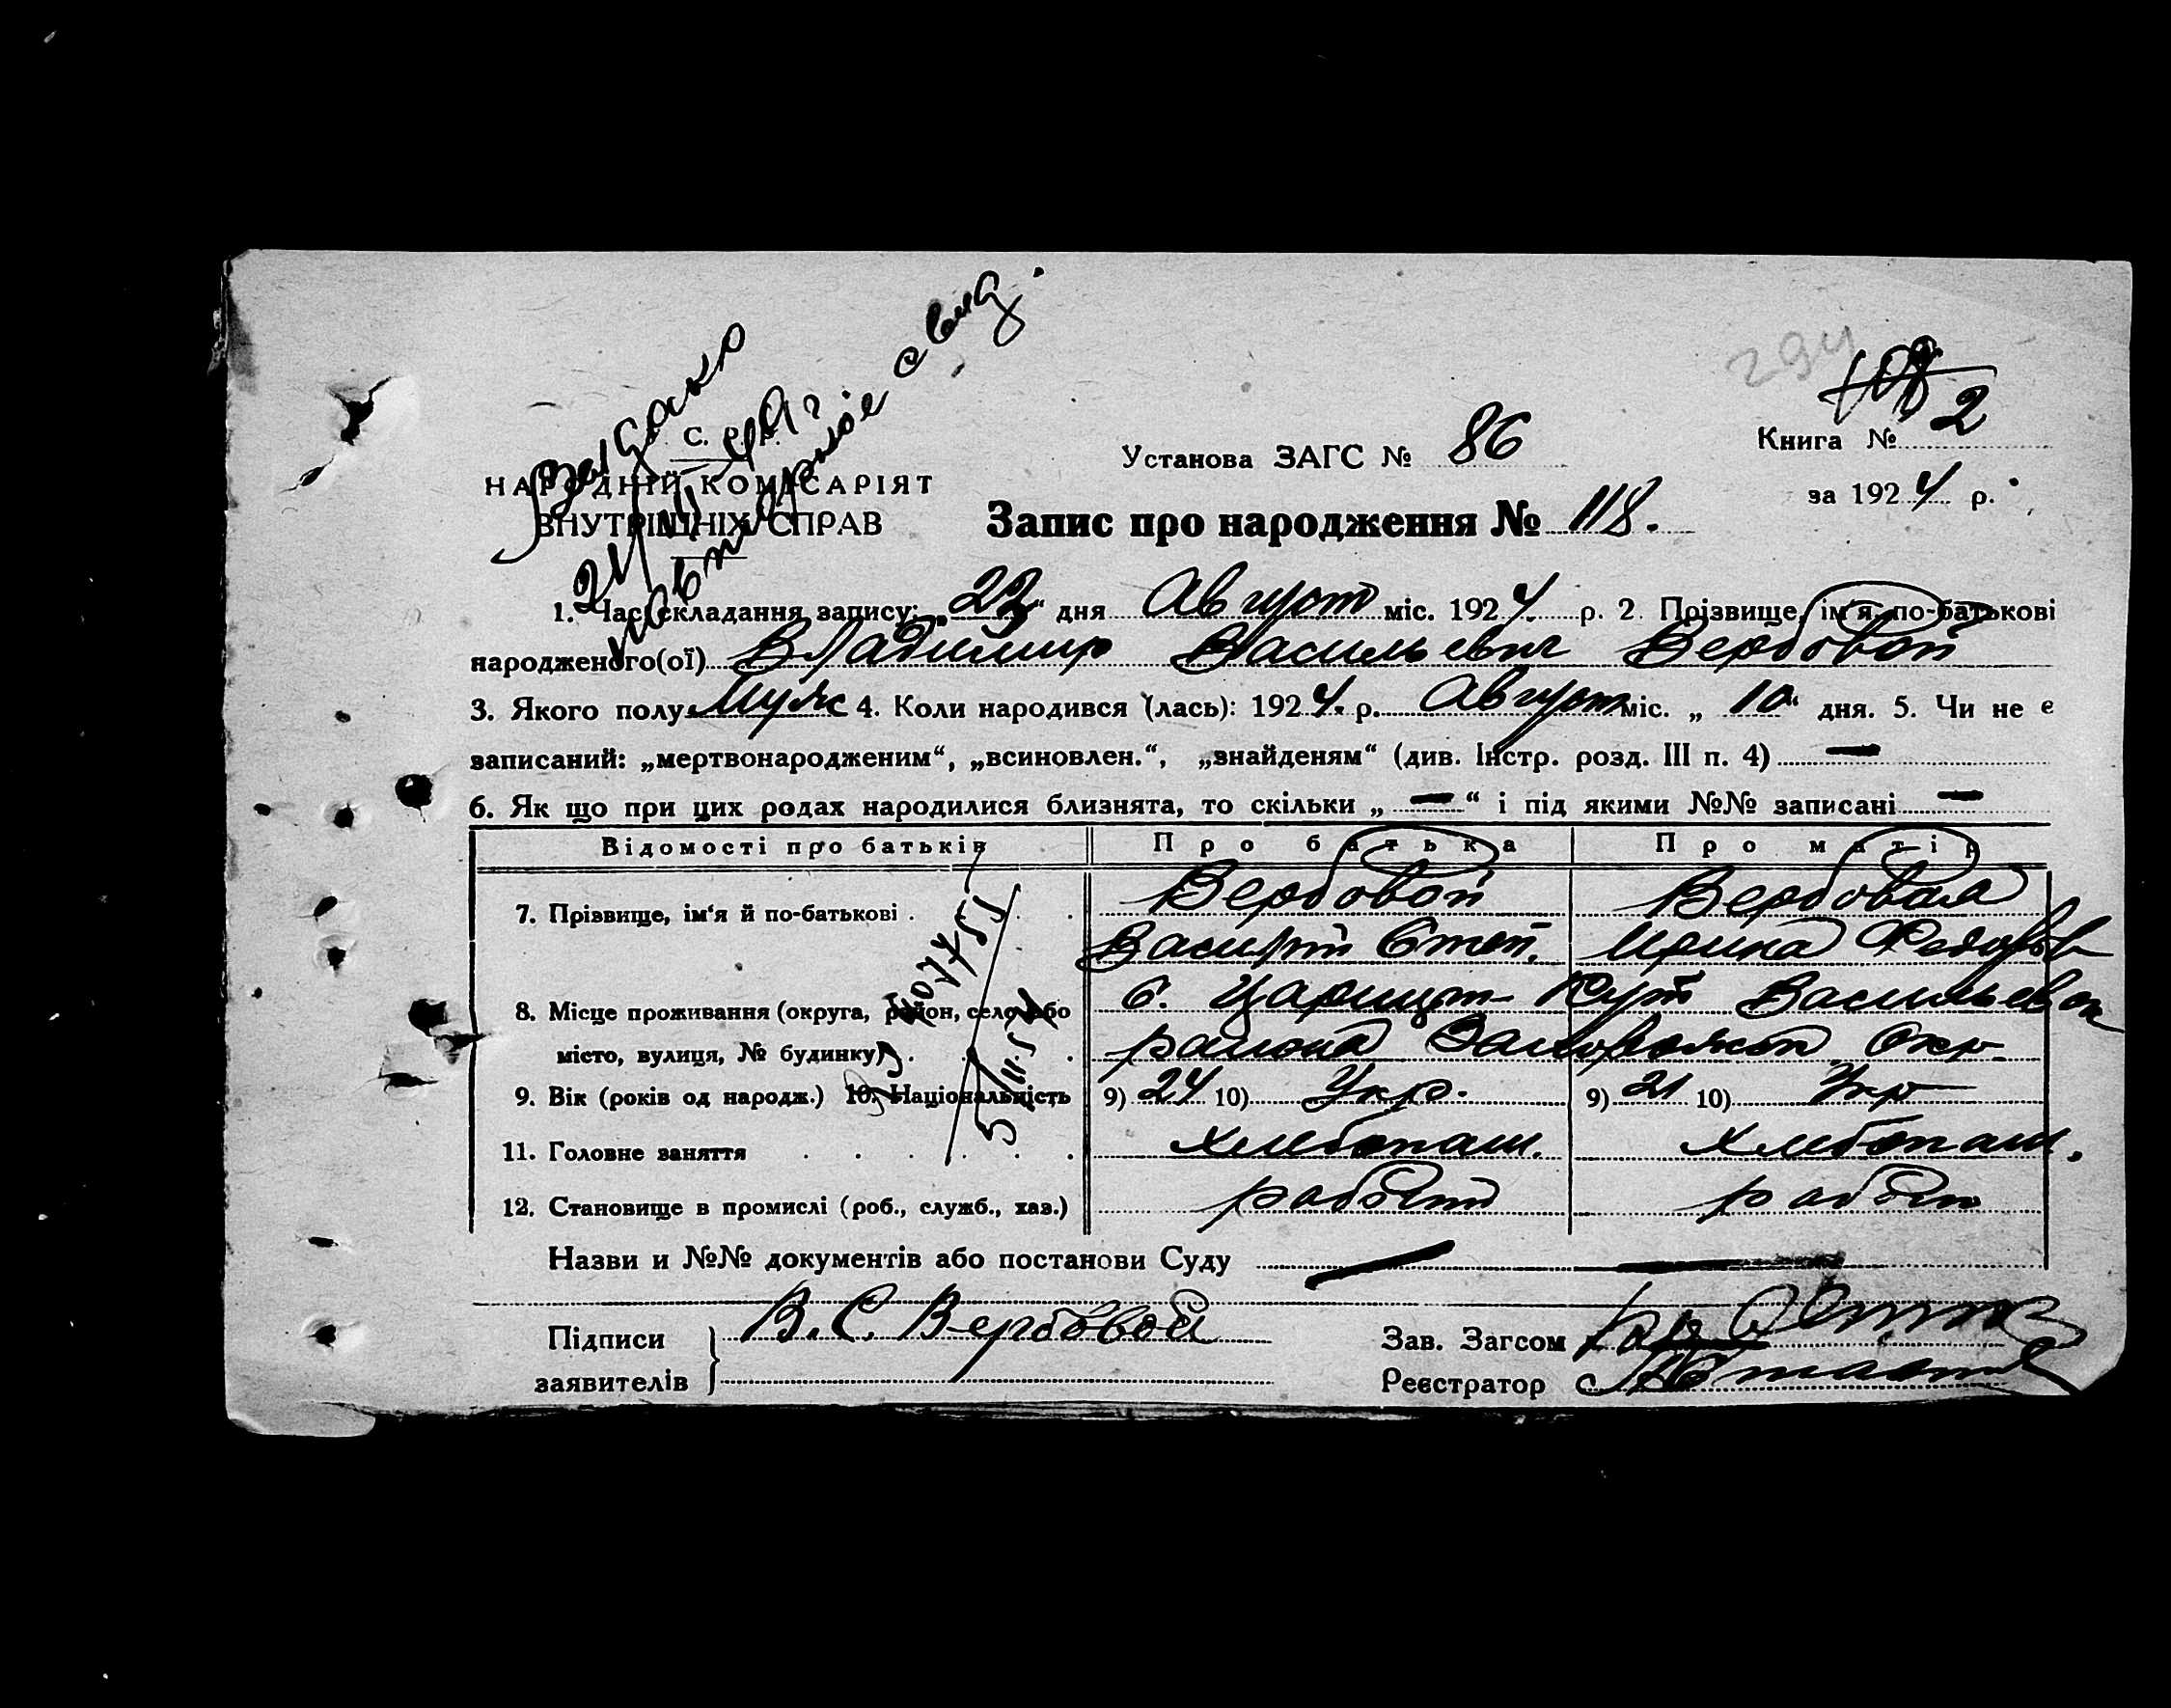 294
Выдано
21/II 49 г.
повторное свид.
С. Р.
НАРОДНІЙ КОМІСАРІЯТ
ВНУТРІШНІХ СПРАВ
Установа ЗАГС № 86
Книга № 2
за 1924 р.
Запис про народження № 118.
1. Час складання запису: „22“ дня Август міс. 1924 р. 2. Прізвище, ім'я по-батькові
народженого(ої) Владимир Васильевич Вербовой
3. Якого полу Муж 4. Коли народився (лась): 1924 р. Август міс. „10“ дня. 5. Чи не є
записаний: „мертвонародженим“, „всиновлен.“, „знайденям“ (див. Інстр. розд. III п. 4) —
6. Як що при цих родах народилися близнята, то скільки „—“ і під якими №№ записані —
Відомості про батьків Про батька Про матір
7. Прізвище, ім'я й по-батькові . . . Вербовой Вербовая
Василий Степ. Ирина Федоров
8. Місце проживання (округа, район, село або С. Царицын Кут Васильевск
місто, вулиця, № будинку) . . . района Запорожск Окр.
9. Вік (років од народж.) 10. Національність 9) 24 10) Укр. 9) 21 10) Укр
11. Головне заняття . . . . . . Хлебопаш. Хлебопаш.
12. Становище в промислі (роб., служб., хаз.) работ работ
Назви и №№ документів або постанови Суду —
Підписи В. С. Вербовой Зав. Загсом
заявителів Реєстратор